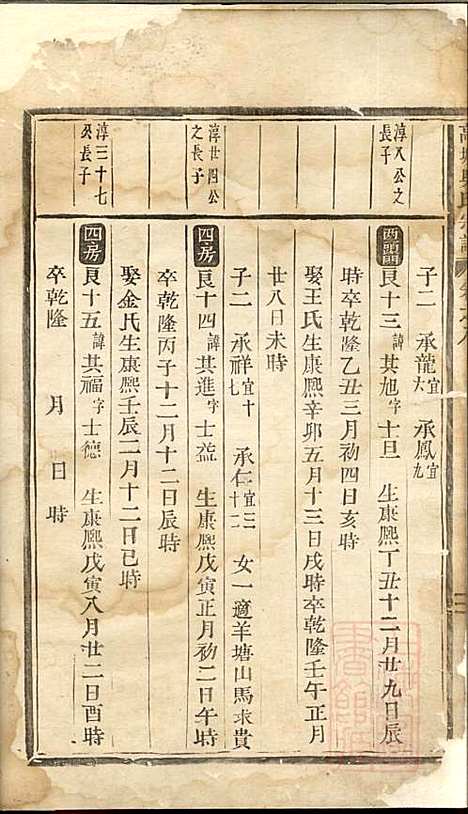 子二 承龍宜六 承鳳宜九
淳八公之長子
西頭門 良十三諱其旭字士旦 生康熙丁丑十二月廿九日辰
時卒乾隆乙丑三月初四日亥時
娶王氏生康熙辛卯五月十三日戌時卒乾隆壬午正月
廿八日未時
子二 承祥宜十七 承仁宜三十二 女一適羊塘山馬求貴
淳廿四公之長子
四房 良十四諱其進字士益 生康熙戊寅正月初二日午時
卒乾隆丙子十二月十二日辰時
娶金氏生康熙壬辰二月十二日巳時
淳三十七公長子
四房 良十五諱其福字士德 生康熙戊寅八月廿二日酉時
卒乾隆 月 日時